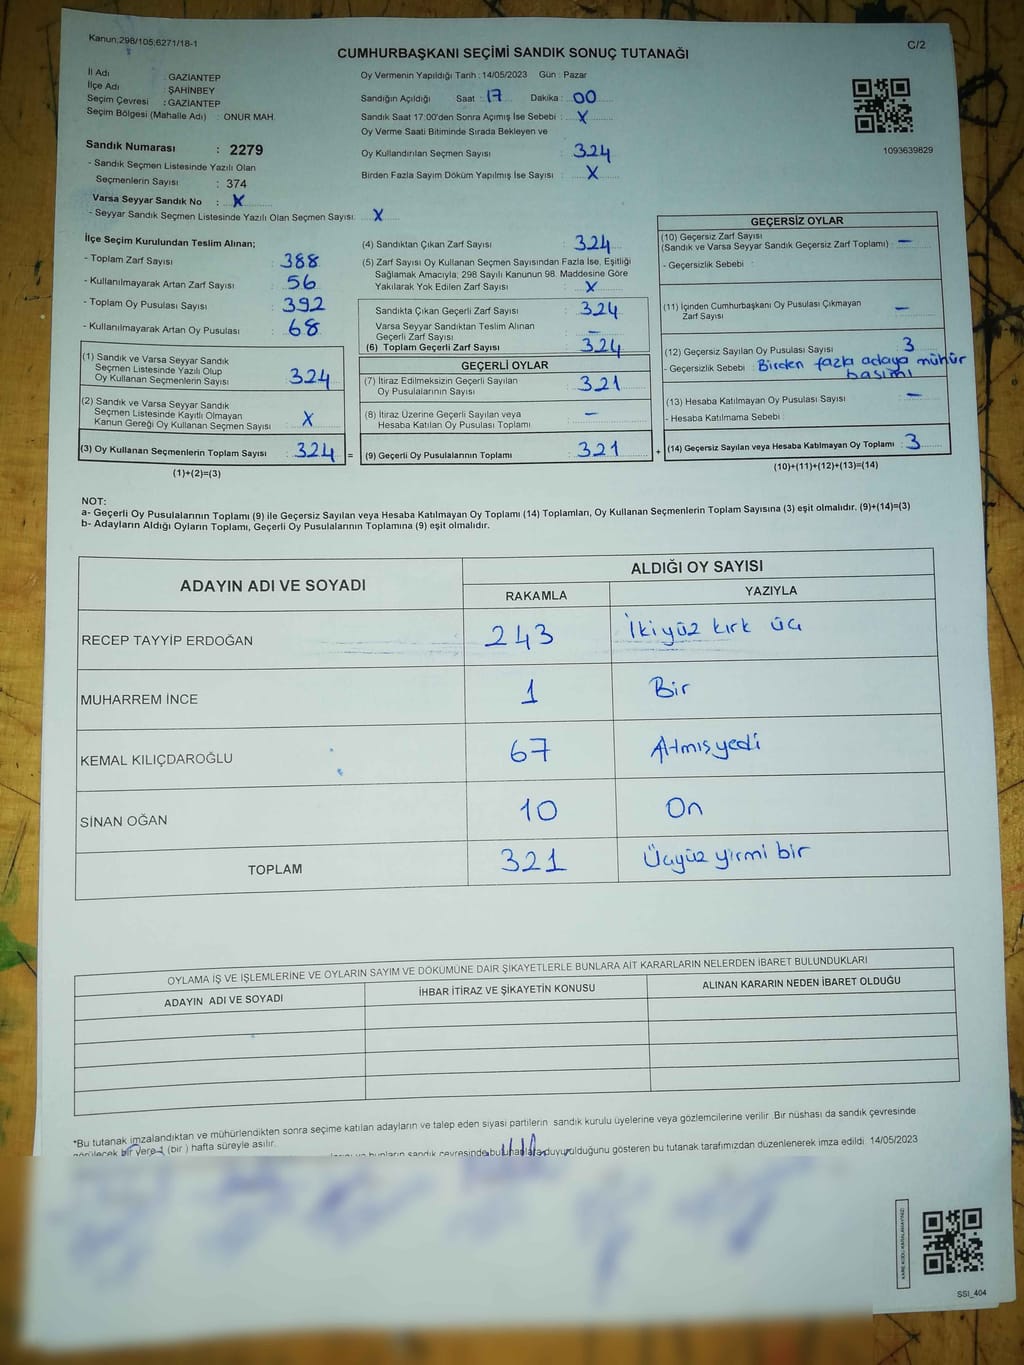 Kanun:298/105;6271/18-1
C/2
CUMHURBAŞKANI SEÇİMİ SANDIK SONUÇ TUTANAĞI
İl Adı : GAZİANTEP
İlçe Adı : ŞAHİNBEY
Seçim Çevresi : GAZİANTEP
Seçim Bölgesi (Mahalle Adı) : ONUR MAH.
Sandık Numarası : 2279
- Sandık Seçmen Listesinde Yazılı Olan
Seçmenlerin Sayısı : 374
Varsa Seyyar Sandık No : X
- Seyyar Sandık Seçmen Listesinde Yazılı Olan Seçmen Sayısı: X
Oy Vermenin Yapıldığı Tarih : 14/05/2023 Gün : Pazar
Sandığın Açıldığı Saat : 17 Dakika : 00
Sandık Saat 17:00'den Sonra Açımış İse Sebebi : X
Oy Verme Saati Bitiminde Sırada Bekleyen ve
Oy Kullandırılan Seçmen Sayısı : 324
Birden Fazla Sayım Döküm Yapılmış İse Sayısı : X
1093639829
İlçe Seçim Kurulundan Teslim Alınan;
- Toplam Zarf Sayısı : 388
- Kullanılmayarak Artan Zarf Sayısı : 56
- Toplam Oy Pusulası Sayısı : 392
- Kullanılmayarak Artan Oy Pusulası : 68
(1) Sandık ve Varsa Seyyar Sandık
Seçmen Listesinde Yazılı Olup
Oy Kullanan Seçmenlerin Sayısı : 324
(2) Sandık ve Varsa Seyyar Sandık
Seçmen Listesinde Kayıtlı Olmayan
Kanun Gereği Oy Kullanan Seçmen Sayısı : X
(3) Oy Kullanan Seçmenlerin Toplam Sayısı : 324 =
(1)+(2)=(3)
(4) Sandıktan Çıkan Zarf Sayısı : 324
(5) Zarf Sayısı Oy Kullanan Seçmen Sayısından Fazla İse, Eşitliği
Sağlamak Amacıyla; 298 Sayılı Kanunun 98. Maddesine Göre
Yakılarak Yok Edilen Zarf Sayısı : X
Sandıkta Çıkan Geçerli Zarf Sayısı : 324
Varsa Seyyar Sandıktan Teslim Alınan
Geçerli Zarf Sayısı : –
(6) Toplam Geçerli Zarf Sayısı : 324
GEÇERLİ OYLAR
(7) İtiraz Edilmeksizin Geçerli Sayılan
Oy Pusulalarının Sayısı : 321
(8) İtiraz Üzerine Geçerli Sayılan veya
Hesaba Katılan Oy Pusulası Toplamı : –
(9) Geçerli Oy Pusulalarının Toplamı : 321 +
GEÇERSİZ OYLAR
(10) Geçersiz Zarf Sayısı
(Sandık ve Varsa Seyyar Sandık Geçersiz Zarf Toplamı) : –
- Geçersizlik Sebebi :
(11) İçinden Cumhurbaşkanı Oy Pusulası Çıkmayan
Zarf Sayısı : –
(12) Geçersiz Sayılan Oy Pusulası Sayısı : 3
- Geçersizlik Sebebi : Birden fazla adaya mühür
basımı
(13) Hesaba Katılmayan Oy Pusulası Sayısı : –
- Hesaba Katılmama Sebebi :
(14) Geçersiz Sayılan veya Hesaba Katılmayan Oy Toplamı : 3
(10)+(11)+(12)+(13)=(14)
NOT:
a- Geçerli Oy Pusulalarının Toplamı (9) ile Geçersiz Sayılan veya Hesaba Katılmayan Oy Toplamı (14) Toplamları, Oy Kullanan Seçmenlerin Toplam Sayısına (3) eşit olmalıdır. (9)+(14)=(3)
b- Adayların Aldığı Oyların Toplamı, Geçerli Oy Pusulalarının Toplamına (9) eşit olmalıdır.
ADAYIN ADI VE SOYADI
ALDIĞI OY SAYISI
RAKAMLA YAZIYLA
RECEP TAYYİP ERDOĞAN 243 İkiyüz kırk üç
MUHARREM İNCE 1 Bir
KEMAL KILIÇDAROĞLU 67 Altmışyedi
SİNAN OĞAN 10 On
TOPLAM 321 Üçyüz yirmi bir
OYLAMA İŞ VE İŞLEMLERİNE VE OYLARIN SAYIM VE DÖKÜMÜNE DAİR ŞİKAYETLERLE BUNLARA AİT KARARLARIN NELERDEN İBARET BULUNDUKLARI
ADAYIN ADI VE SOYADI İHBAR İTİRAZ VE ŞİKAYETİN KONUSU ALINAN KARARIN NEDEN İBARET OLDUĞU
*Bu tutanak imzalandıktan ve mühürlendikten sonra seçime katılan adayların ve talep eden siyasi partilerin sandık kurulu üyelerine veya gözlemcilerine verilir. Bir nüshası da sandık çevresinde
görülecek bir yere 1 (bir) hafta süreyle asılır.
bunların sandık çevresinde bulunanlara duyurulduğunu gösteren bu tutanak tarafımızdan düzenlenerek imza edildi. 14/05/2023
SSI_404